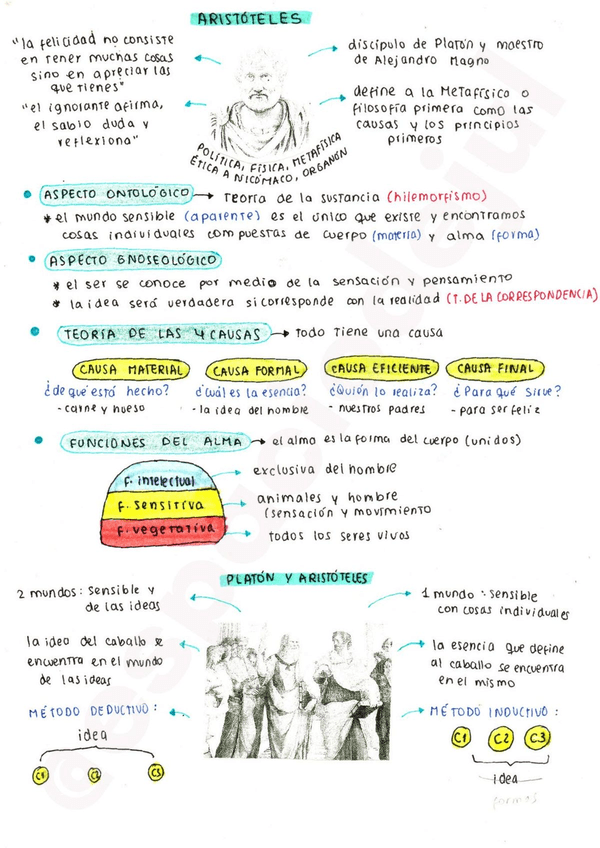 ARISTÓTELES
"la felicidad no consiste
en tener muchas cosas
sino en apreciar las
que tienes"
"el ignorante afirma,
el sabio duda y
reflexiona"
discípulo de Platón y maestro
de Alejandro Magno
define a la Metafísica o
filosofía primera como las
causas y los principios
primeros
POLÍTICA, FÍSICA, METAFÍSICA
ÉTICA A NICÓMACO, ORGANON
ASPECTO ONTOLÓGICO → Teoría de la sustancia (hilemorfismo)
* el mundo sensible (aparente) es el único que existe y encontramos
cosas individuales compuestas de cuerpo (materia) y alma (forma)
ASPECTO GNOSEOLÓGICO
* el ser se conoce por medio de la sensación y pensamiento
* la idea será verdadera si corresponde con la realidad (T. DE LA CORRESPONDENCIA)
TEORÍA DE LAS 4 CAUSAS → Todo tiene una causa
CAUSA MATERIAL
¿de qué está hecho?
- carne y hueso
CAUSA FORMAL
¿cuál es la esencia?
- la idea del hombre
CAUSA EFICIENTE
¿Quién lo realiza?
- nuestros padres
CAUSA FINAL
¿Para qué sirve?
- para ser feliz
FUNCIONES DEL ALMA → el alma es la forma del cuerpo (unidos)
F. intelectual
exclusiva del hombre
F. sensitiva
animales y hombre
(sensación y movimiento
F. vegetativa
todos los seres vivos
PLATÓN Y ARISTÓTELES
2 mundos: sensible y
de las ideas
la idea del caballo se
encuentra en el mundo
de las ideas
MÉTODO DEDUCTIVO:
idea
C1 C2 C3
1 mundo: sensible
con cosas individuales
la esencia que define
al caballo se encuentra
en el mismo
MÉTODO INDUCTIVO:
C1 C2 C3
idea
formas